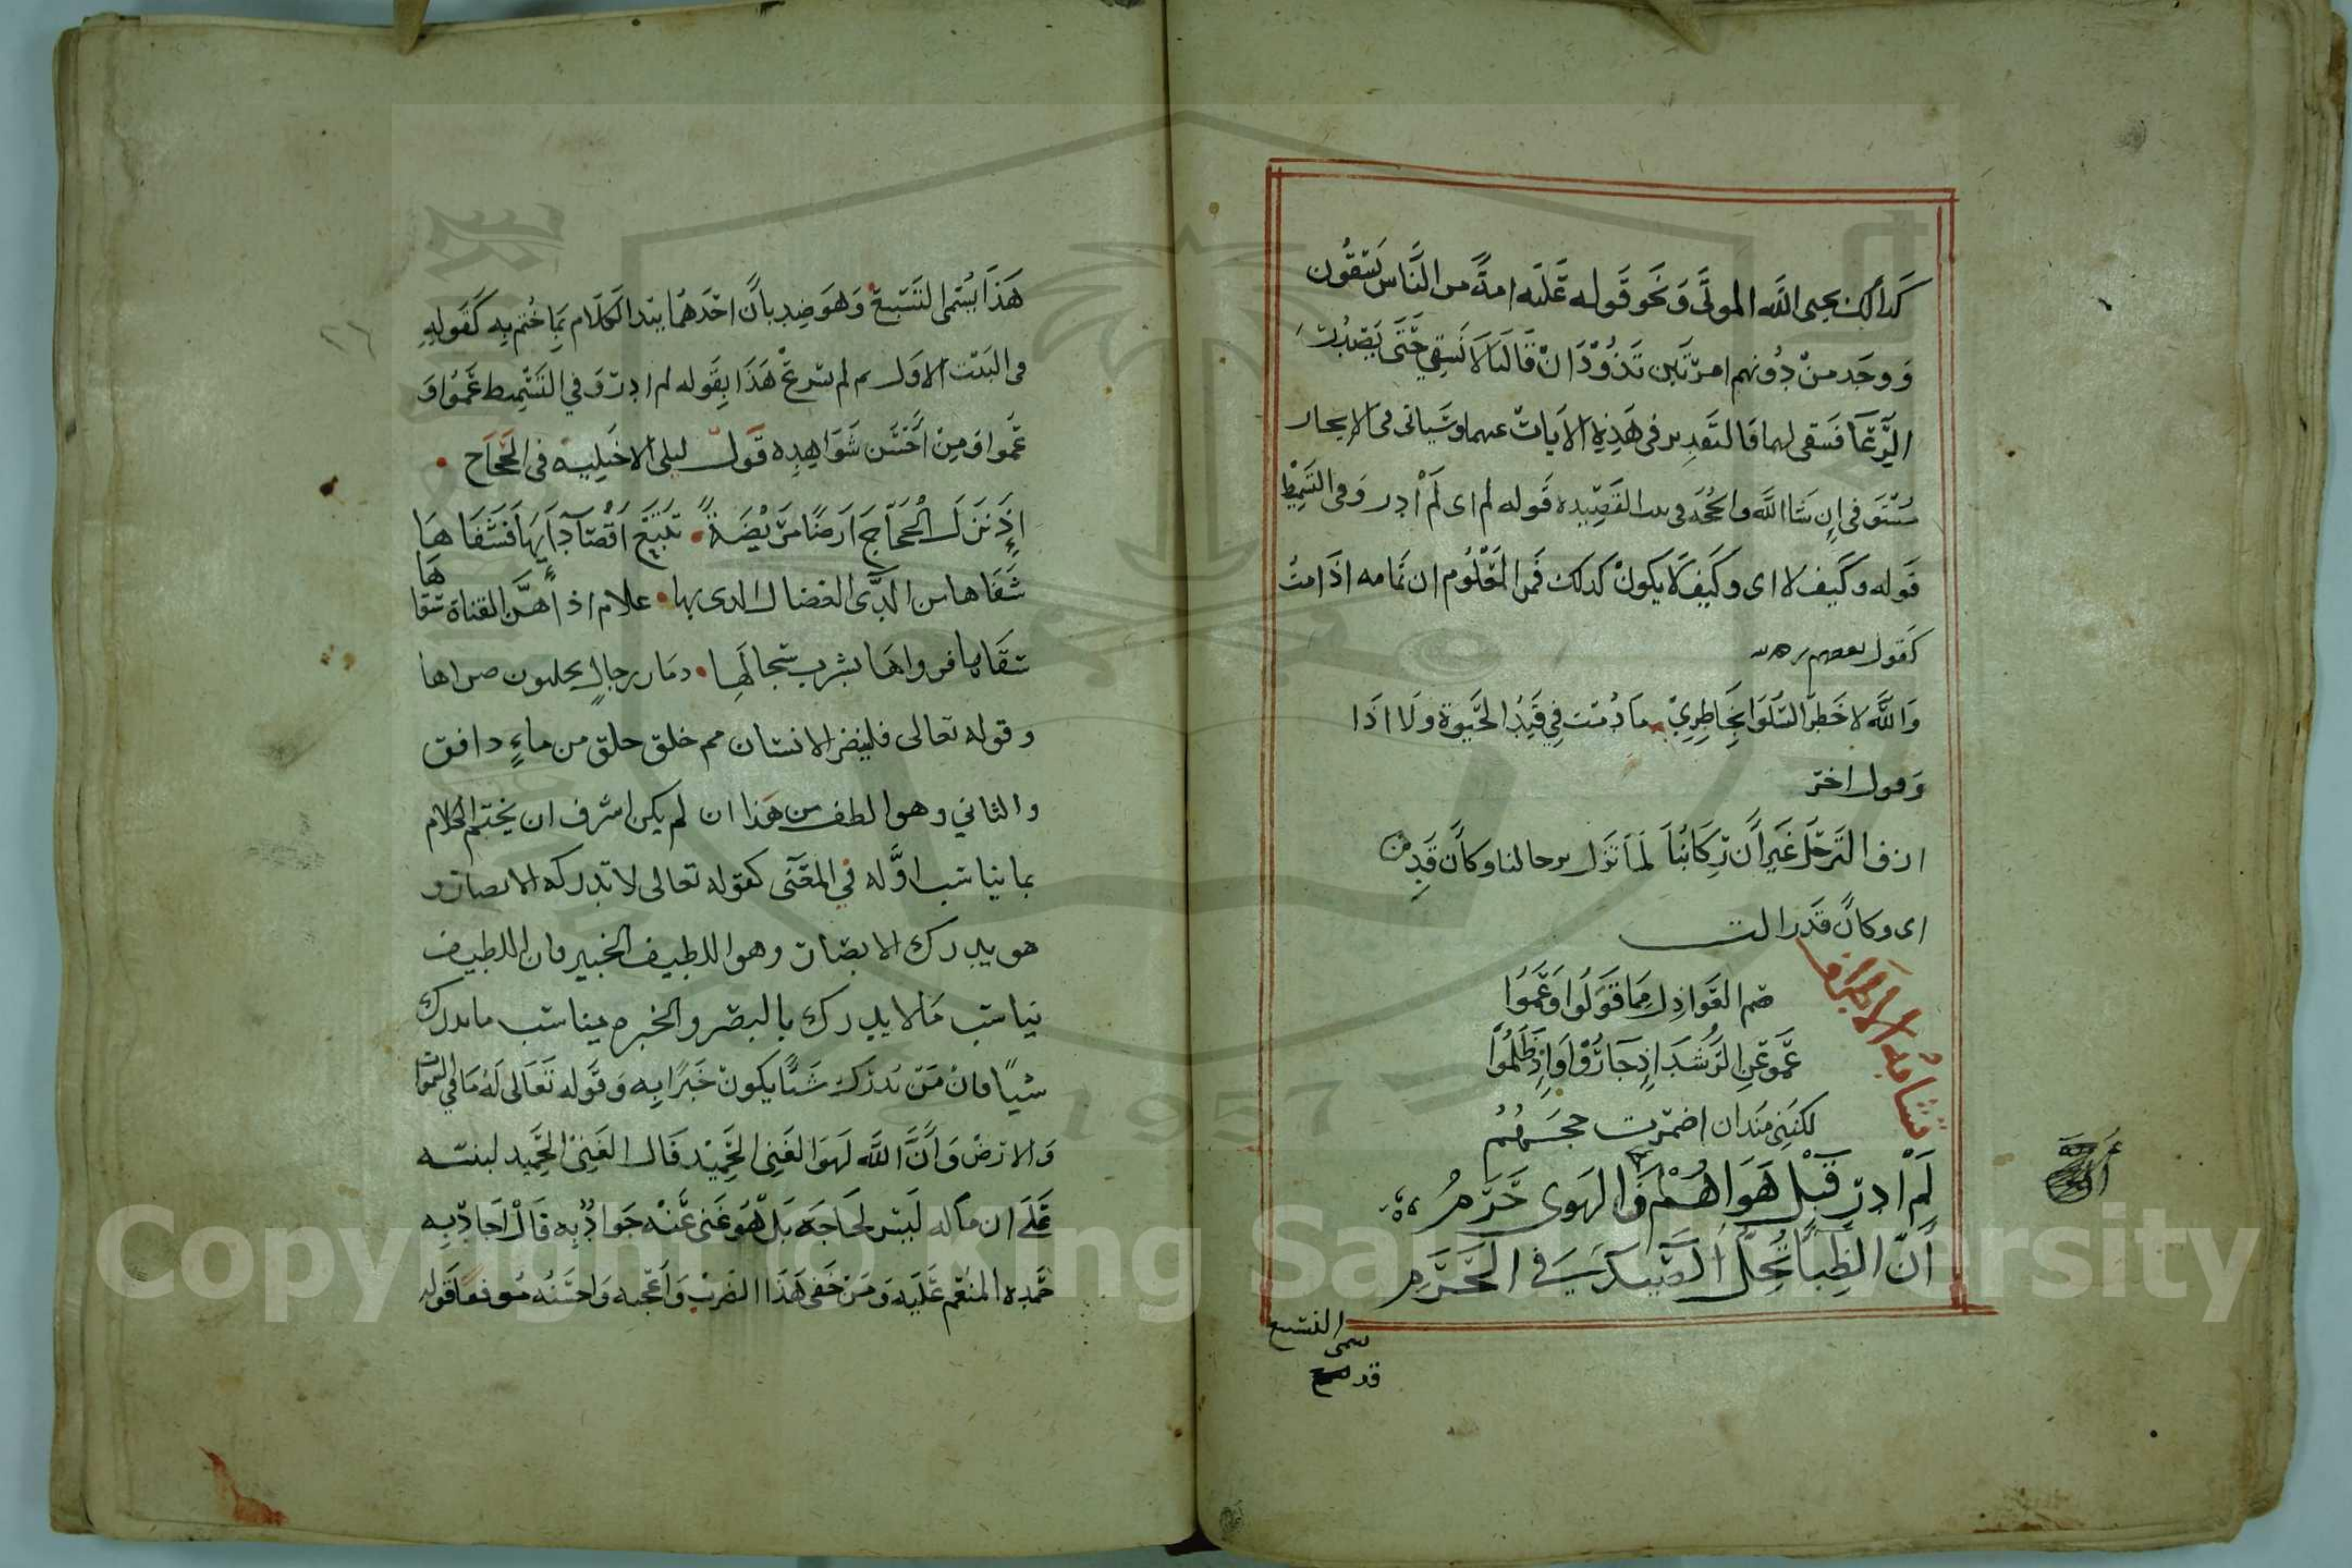 كذلك يحيى الله المولى ونحو قوله عليه امة من الناس يسقون
ووجد من دونهم امرتين تذودان قالتا لا نسقي حتى يصدر
الرعا فسقى لهما فالتقدير في هذه الايات عنهما وسياتى فى الايجاز
مستوفى ان شا الله والحجه فى القصيده قوله لم اى لم أدر وفى التسميط
قوله وكيف لا اى وكيف لا يكون كذلك فمن المعلوم ان تمامه اذا مت
كقول بعضهم
والله لا خطر السلوا بخاطري ما دمت في قيد الحيوة ولا اذا
وقول اخر
ازف الترحل غير أن ركابنا لما تزل برحالنا وكأن قد
اى وكان قد زالت
تشابه الاطراف
صم العواذل مما قولوا وعموا
عموا عن الرشد إذ جاروا وإذ ظلموا
لكنني منذ ان اضمرت حبهم
لم ادر قبل هواهم والهوى حرم
أن الظبا تحل الصيد في الحرم
سمى التسبيع
قد
هذا يسمى التسبيغ وهو ضد بأن احدهما يبتدا الكلام بما ختم به كقوله
فى البيت الاول لم ثم شرع هذا بقوله لم ادر وفي التسميط عموا و
عموا ومن أحسن شواهده قول ليلى الاخيلية فى الحجاج
إذ نزل الحجاج ارضا مريضة تتبع اقصا دآيها فشفاها
شفاها من الدى العضال الدى بها غلام اذا هز القناة سقاها
سقاها فرواها بشرب سجالها دما رجال يحلبون صراها
وقوله تعالى فلينضر الانسان مم خلق خلق من ماء دافق
والثاني وهو الطف من هذا ان لم يكن اشرف ان يختم الكلام
بما يناسب اوله في المعنى كقوله تعالى لا تدركه الابصار و
هو يدرك الابصار وهو اللطيف الخبير فان اللطيف
يناسب مالا يدرك بالبصر والخبره يناسب ما يدرك
شيأ فان من يدرك شيأ يكون خبرا به وقوله تعالى له ما في السموات
والارض وأن الله لهو الغني الحميد قال الغني الحميد لينبه
على ان ماله ليس لحاجه بل هو غنى عنه جواد به قال اجاد به
حمده المنعم عليه ومن خفى هذا الضرب وأعجبه واحسنه موقعا قوله